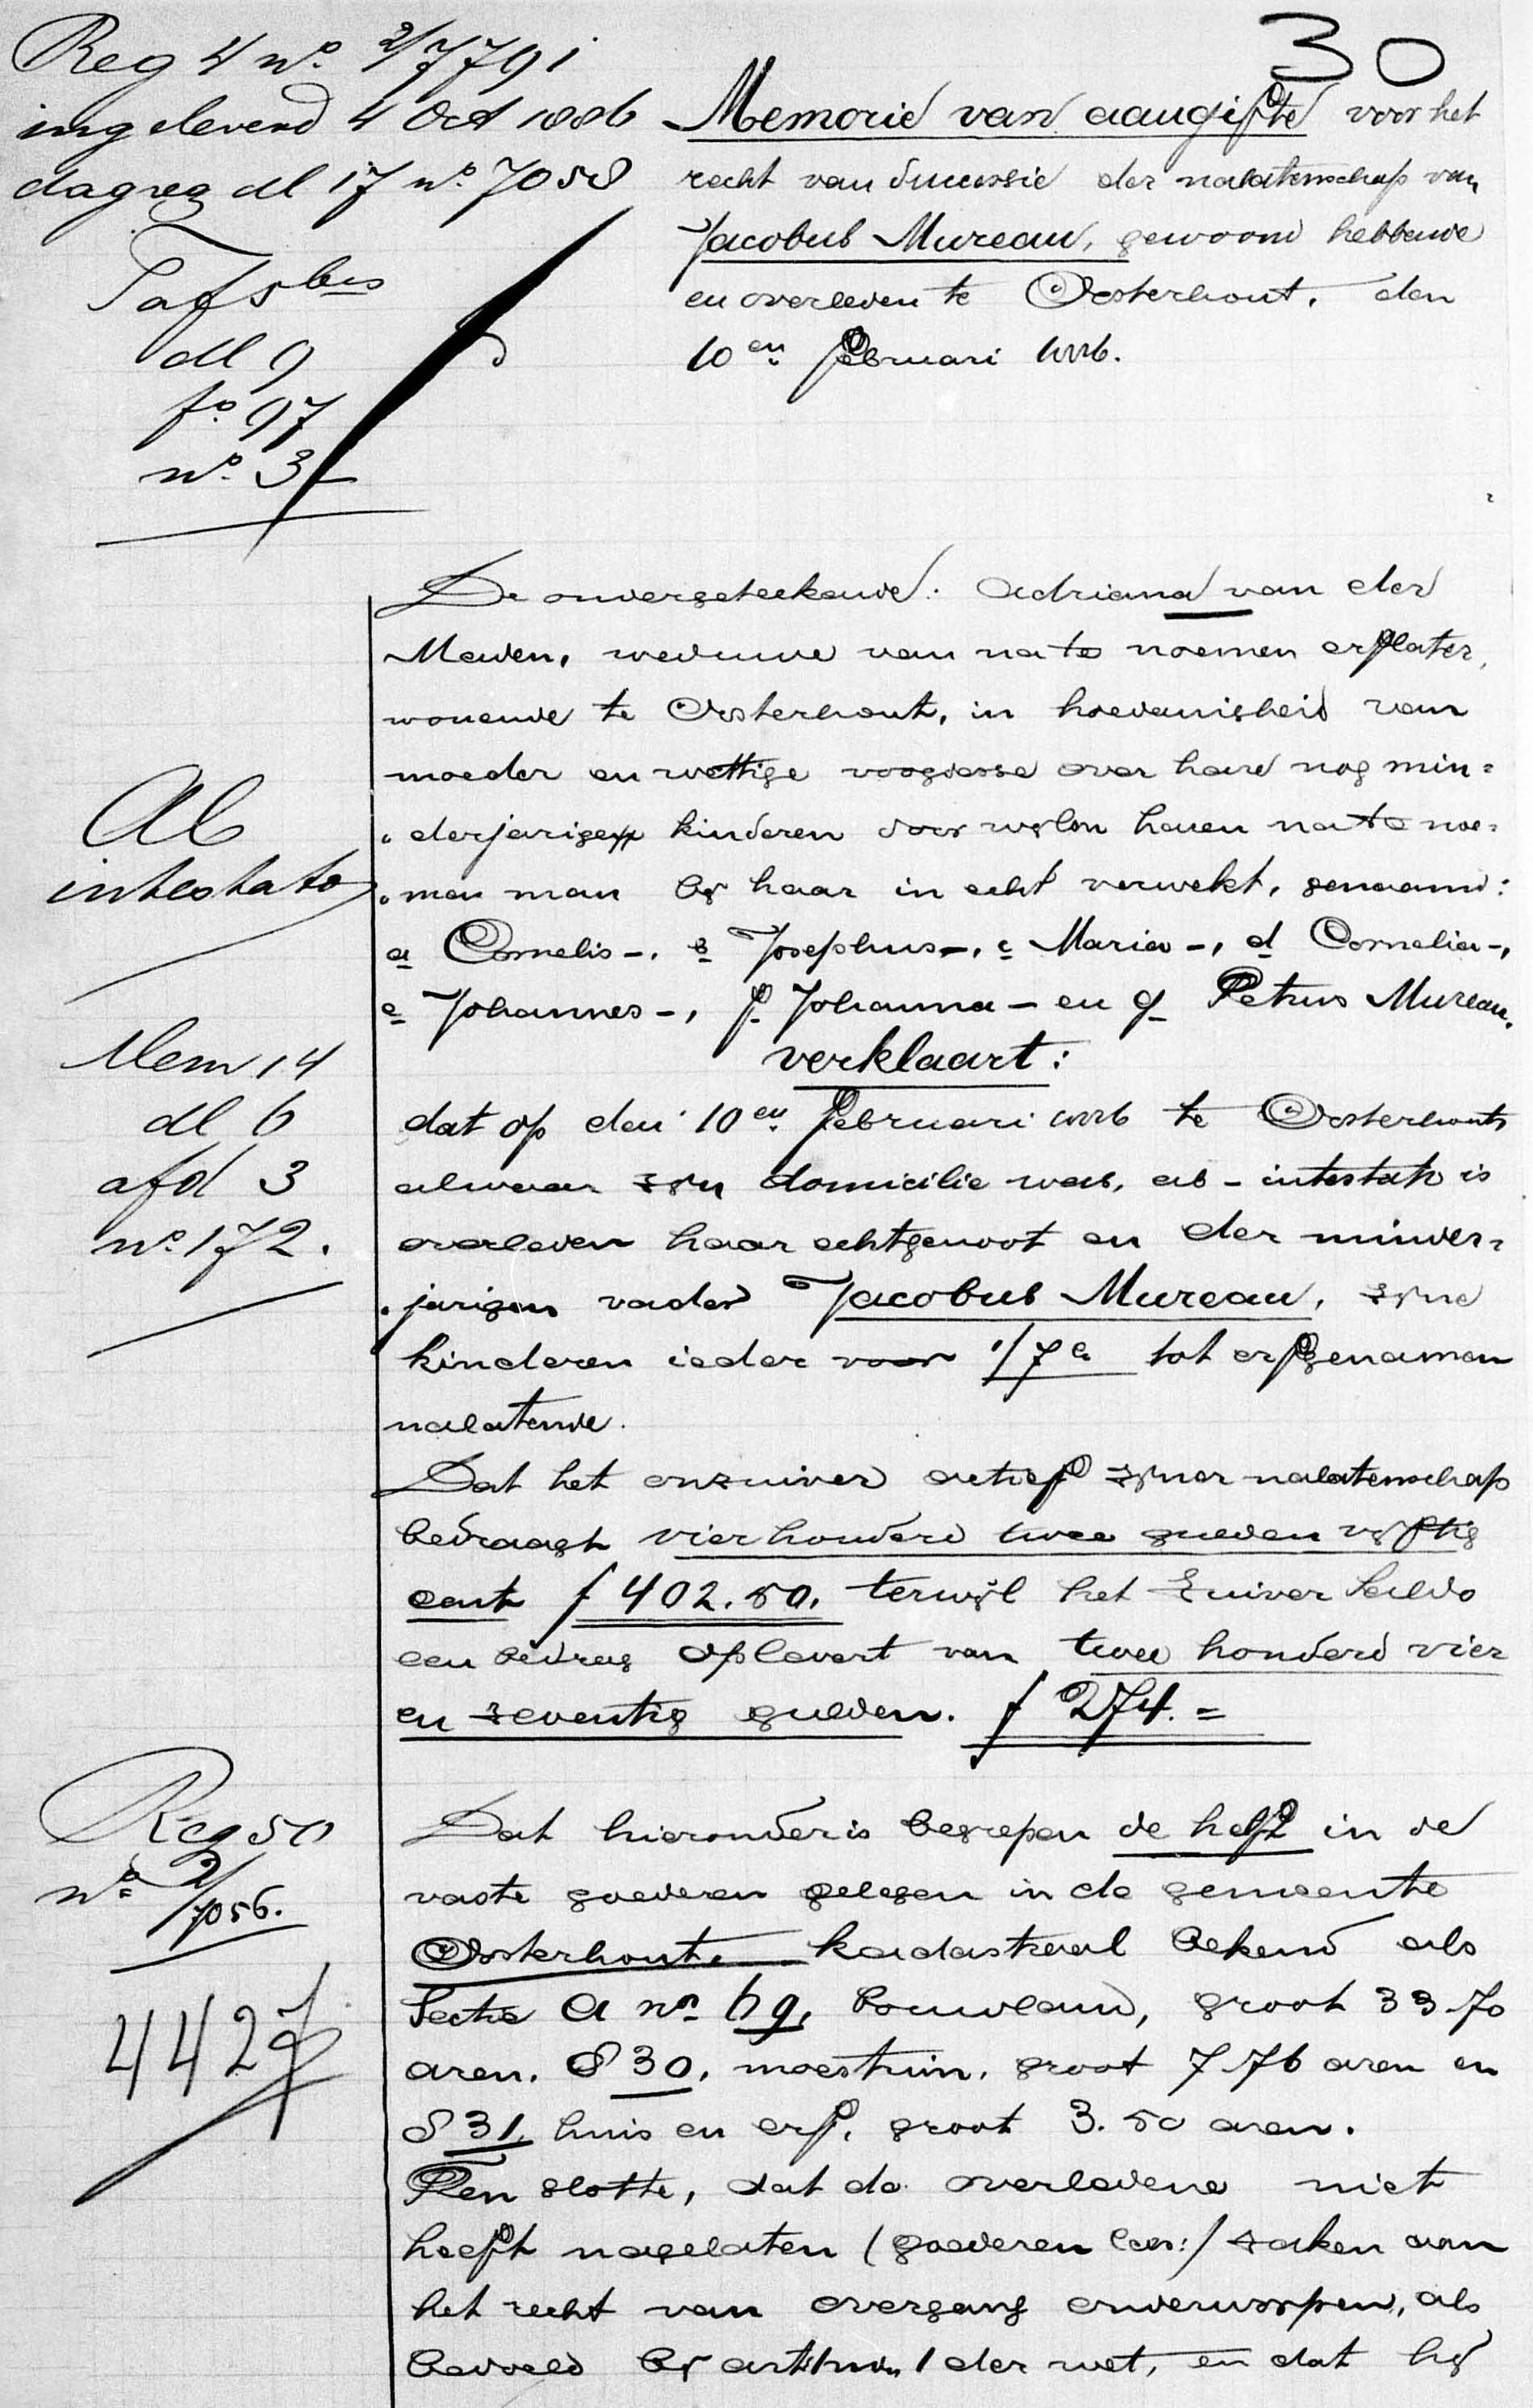 30
Reg 4 no. 2/7791
ingeleverd 4 Oct 1886
dagreg dl 17 no. 7058
Taf 5bis
dl 9
fo. 97
no. 3
Memorie van aangifte voor het
recht van successie der nalatenschap van
Jacobus Mureau, gewoond hebbende
en overleden te Oosterhout, den
10en Februari 1886.
De ondergeteekende: Adriana van der
Meiden, weduwe van na te noemen erflater,
wonende te Oosterhout, in hoedanigheid van
moeder en wettige voogdesse over hare nog min=
derjarigen kinderen door wijlen haren na te noe=
men man bij haar in echt verwekt, genaamd:
a Cornelis -, b Josephus -, c Maria -, d Cornelia -,
e Johannes -, f Johanna - en g Petrus Mureau.
verklaart:
Ab
intestato
Mem 14
dl 6
afd 3
no. 172.
dat op den 10en Februari 1886 te Oosterhout
alwaar zijn domicilie was, ab-intestato is
overleden haar echtgenoot en der minder=
jarigen vader Jacobus Mureau, zijne
kinderen ieder voor 1/7e tot erfgenamen
nalatende.
Dat het onzuiver actief zijner nalatenschap
bedraagt vierhonderd twee gulden vijftig
cent f 402.50. terwijl het zuiver Saldo
een bedrag oplevert van twee honderd vier
en zeventig gulden. f 274.=
Reg 50
no. 2/7056.
4427
Dat hieronder is begrepen de helft in de
vaste goederen gelegen in de gemeente
Oosterhout, kadastraal bekend als
Sectie A no 69, bouwland, groot 33.70
aren. 830, moestuin, groot 7.76 aren en
831, huis en erf, groot 3.50 aren.
Ten slotte, dat de overledene niet
heeft nagelaten (goederen lees:/ zaken aan
het recht van overgang onderworpen, als
bedoeld bij 1 der wet, en dat hij